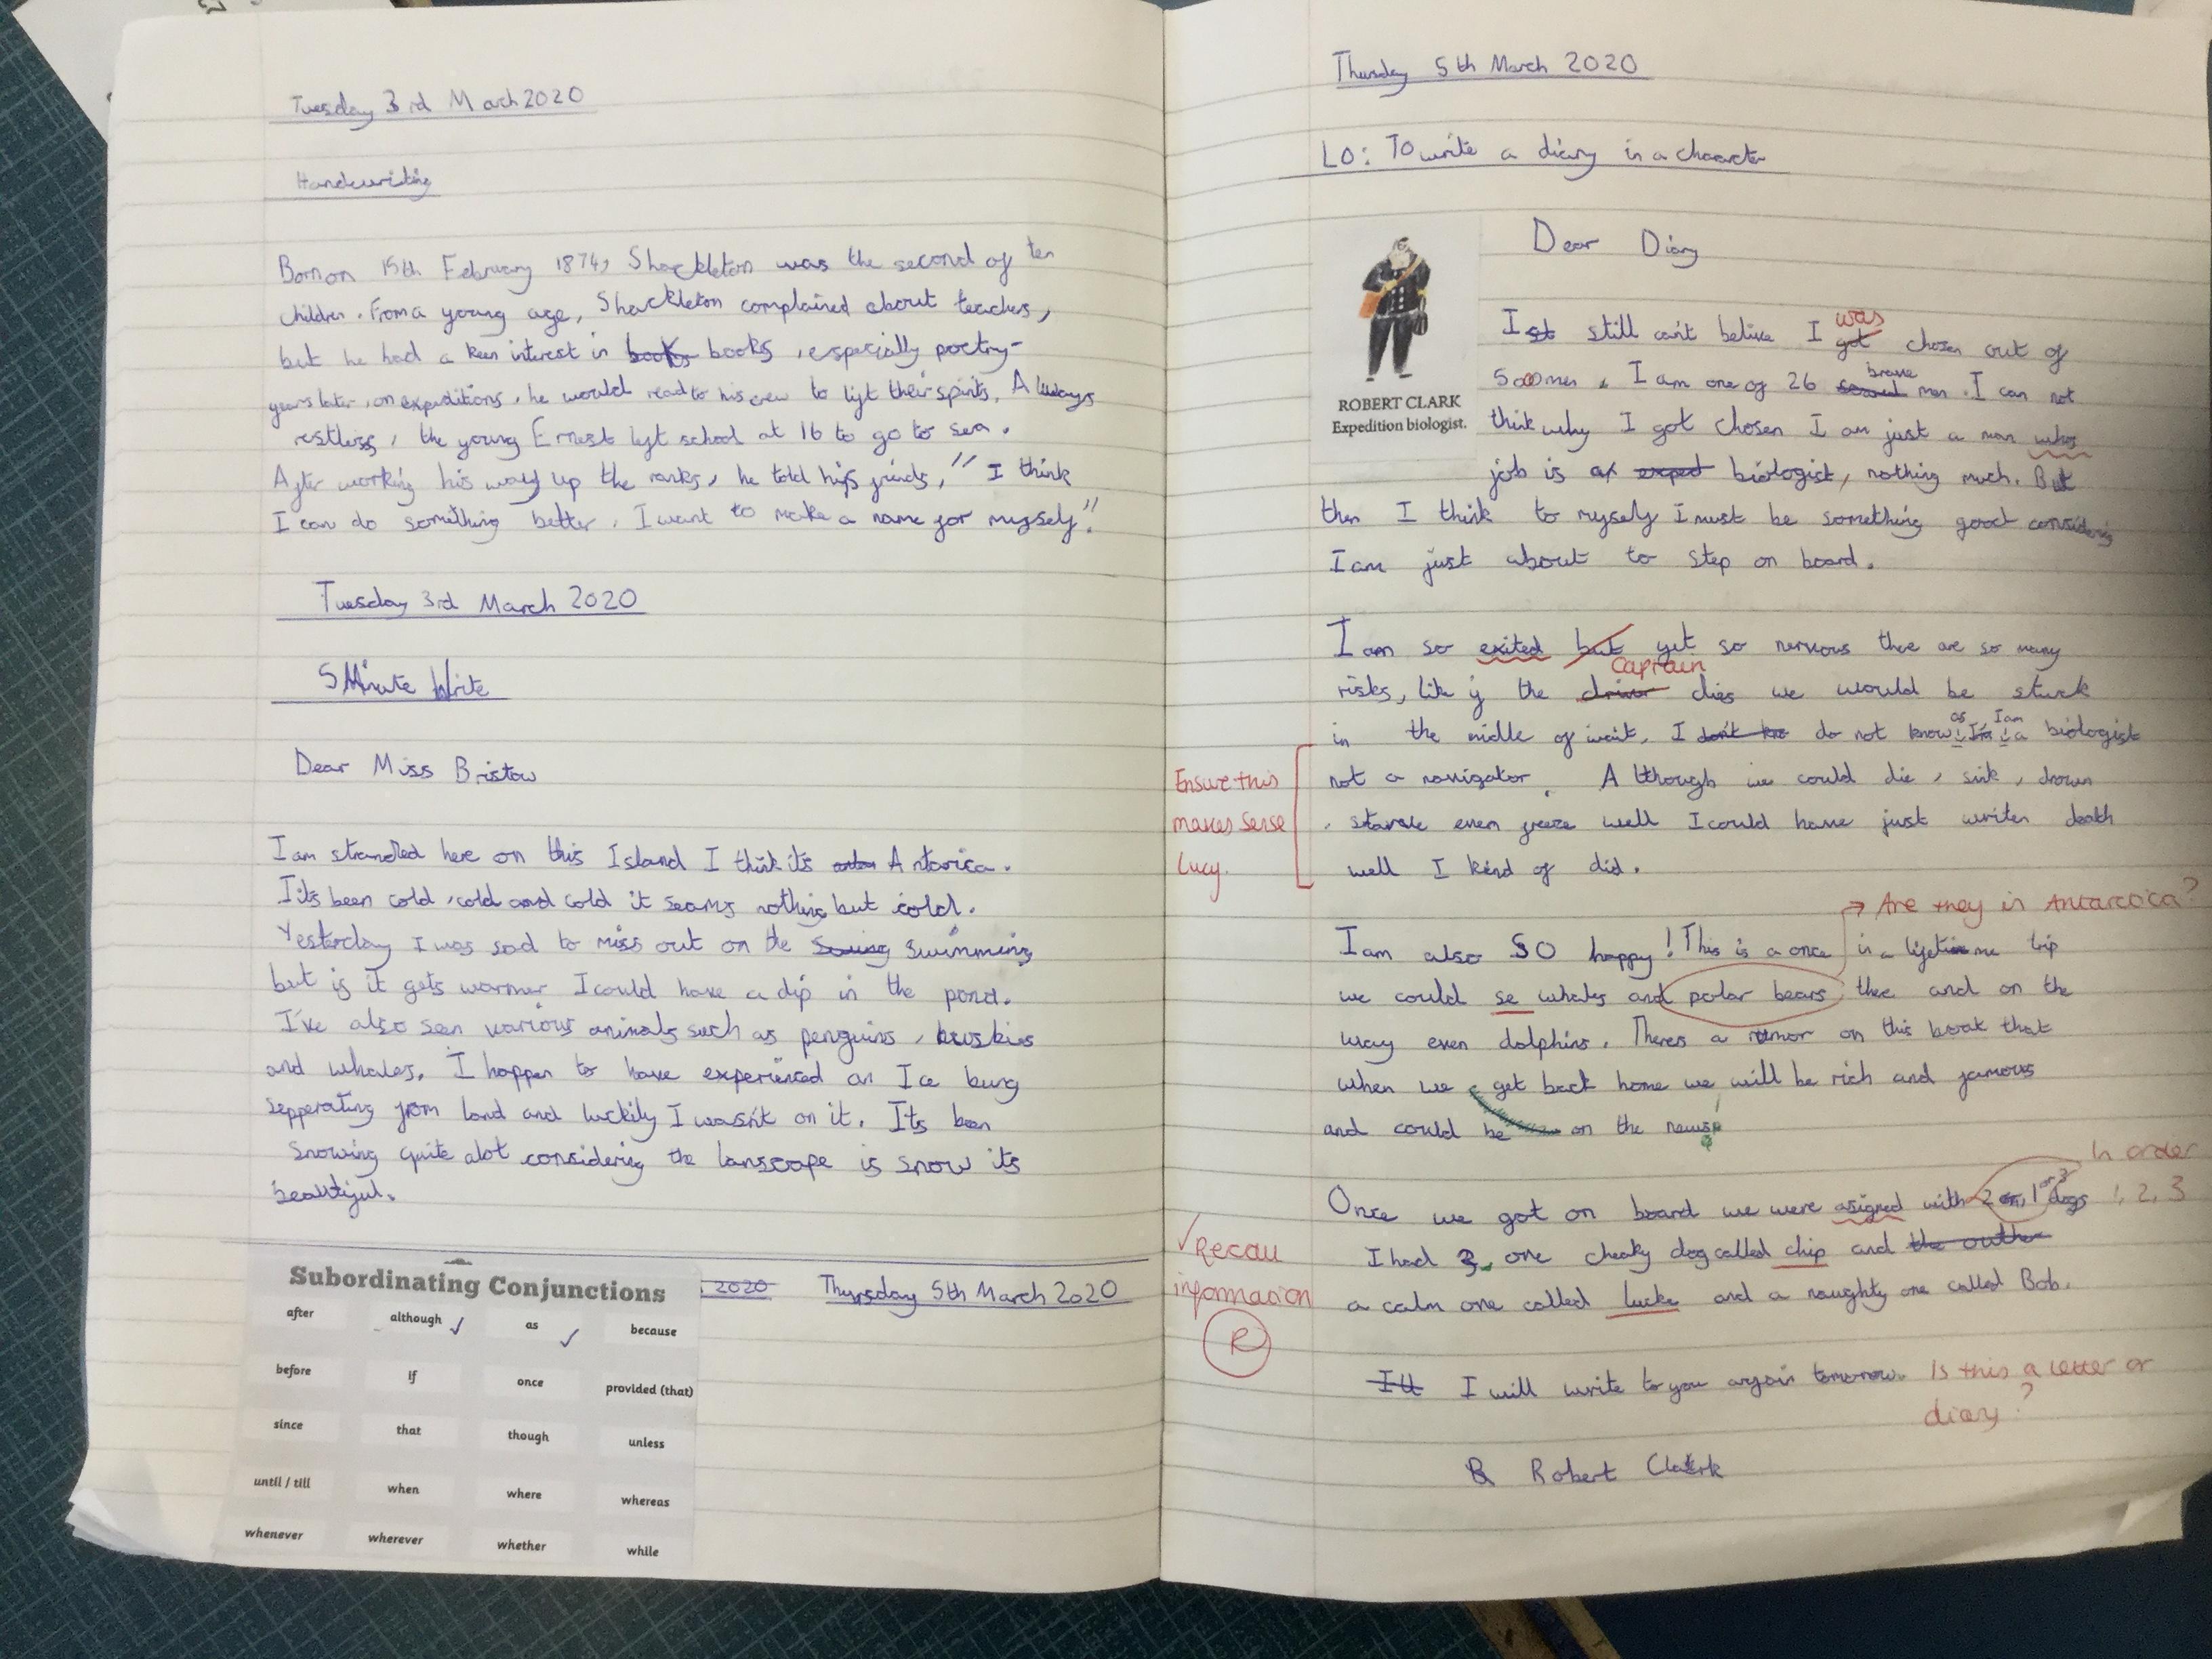 Tuesday 3rd March 2020
Handwriting
Born on 15th February 1874, Shackleton was the second of ten
children. From a young age, Shackleton complained about teachers,
but he had a keen interest in books books, especially poetry-
years later, on expeditions, he would read to his crew to lift their spirits. Always
restless, the young Ernest left school at 16 to go to sea.
After working his way up the ranks, he told his friends, "I think
I can do something better. I want to make a name for myself".
Tuesday 3rd March 2020
5 Minute Write
Dear Miss Bristow
I am stranded here on this Island I think its Antarica.
It's been cold, cold and cold it seams nothing but cold.
Yesterday I was sad to miss out on the swimming
but is it gets warmer I could have a dip in the pond.
I've also seen various animals such as penguins, huskies
and whales. I happen to have experienced an Ice burg
sepperating from land and luckily I wasn't on it. Its been
snowing quite alot considering the lanscape is snow its
beautiful.
2020 Thursday 5th March 2020
Subordinating Conjunctions
after although as because
before if once provided (that)
since that though unless
until / till when where whereas
whenever wherever whether while
Thursday 5th March 2020
LO: To write a diary in a character
ROBERT CLARK
Expedition biologist.
Dear Diary
was
I st still can't belive I got chosen out of
brave
5000 men. I am one of 26 men. I can not
think why I got chosen I am just a man whos
job is a biologist, nothing much. But
then I think to myself I must be something good considering
I am just about to step on board.
I am so exited but yet so nervous there are so many
Captain
risks, like if the driver dies we would be stuck
as I am
in the midle of wait, I don't kno do not know I'm a biologist
not a navigator. Although we could die, sink, drown
, starve even freeze well I could have just writen death
well I kind of did.
Ensure this
makes sense
Lucy.
→ Are they in Antarctica?
I am also SO happy! This is a once in a lifetime trip
we could se whales and polar bears thee and on the
way even dolphins. Theres a rumor on this boat that
when we get back home we will be rich and famous
and could be on the news!
In order
1, 2, 3
or 3
Once we got on board we were asigned with 2 or, 1 dogs
I had 3, one cheaky dog called chip and the outher
a calm one called lucke and a naughty one called Bob.
✓ Recall
information
R
I'll I will write to you again tomorrow.
Is this a letter or
diary?
R Robert Clark